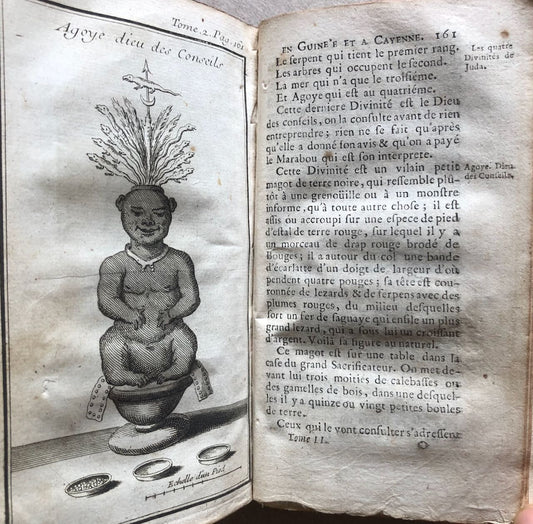 Tome 2. Pag. 161
Agoye dieu des Conseils
Echelle d'un Pied
EN GUINE'E ET A CAYENNE. 161
Le serpent qui tient le premier rang.
Les arbres qui occupent le second.
La mer qui n'a que le troisiéme.
Et Agoye qui est au quatriéme.
Cette derniere Divinité est le Dieu
des conseils, on la consulte avant de rien
entreprendre; rien ne se fait qu'après
qu'elle a donné son avis & qu'on a payé
le Marabou qui est son interprete.
Cette Divinité est un vilain petit
magot de terre noire, qui ressemble plû-
tôt à une grenoüille ou à un monstre
informe, qu'à toute autre chose; il est
assis ou accroupi sur une espece de pied
d'estal de terre rouge, sur lequel il y a
un morceau de drap rouge brodé de
Bouges; il a autour du col une bande
d'écarlatte d'un doigt de largeur d'où
pendent quatre pouges; sa tête est cou-
ronnée de lezards & de serpens avec des
plumes rouges, du milieu desquelles
sort un fer de saguaye qui enfile un plus
grand lezard, qui a sous lui un croissant
d'argent. Voilà sa figure au naturel.
Ce magot est sur une table dans la
case du grand Sacrificateur. On met de-
vant lui trois moitiés de calebasses ou
des gamelles de bois, dans une desquel-
les il y a quinze ou vingt petites boules
de terre.
Ceux qui le vont consulter s'adressent
Tome II. O
Les quatre
Divinités de
Juda.
Agoye. Dieu
des Conseils.